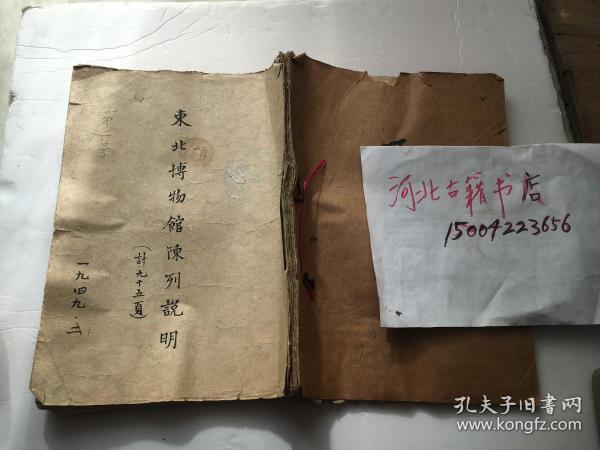 第一号
東北博物館陳列説明
(計九十五頁)
一九四九·二
河北古籍书店
15004223656
孔夫子旧书网
www.kongfz.com